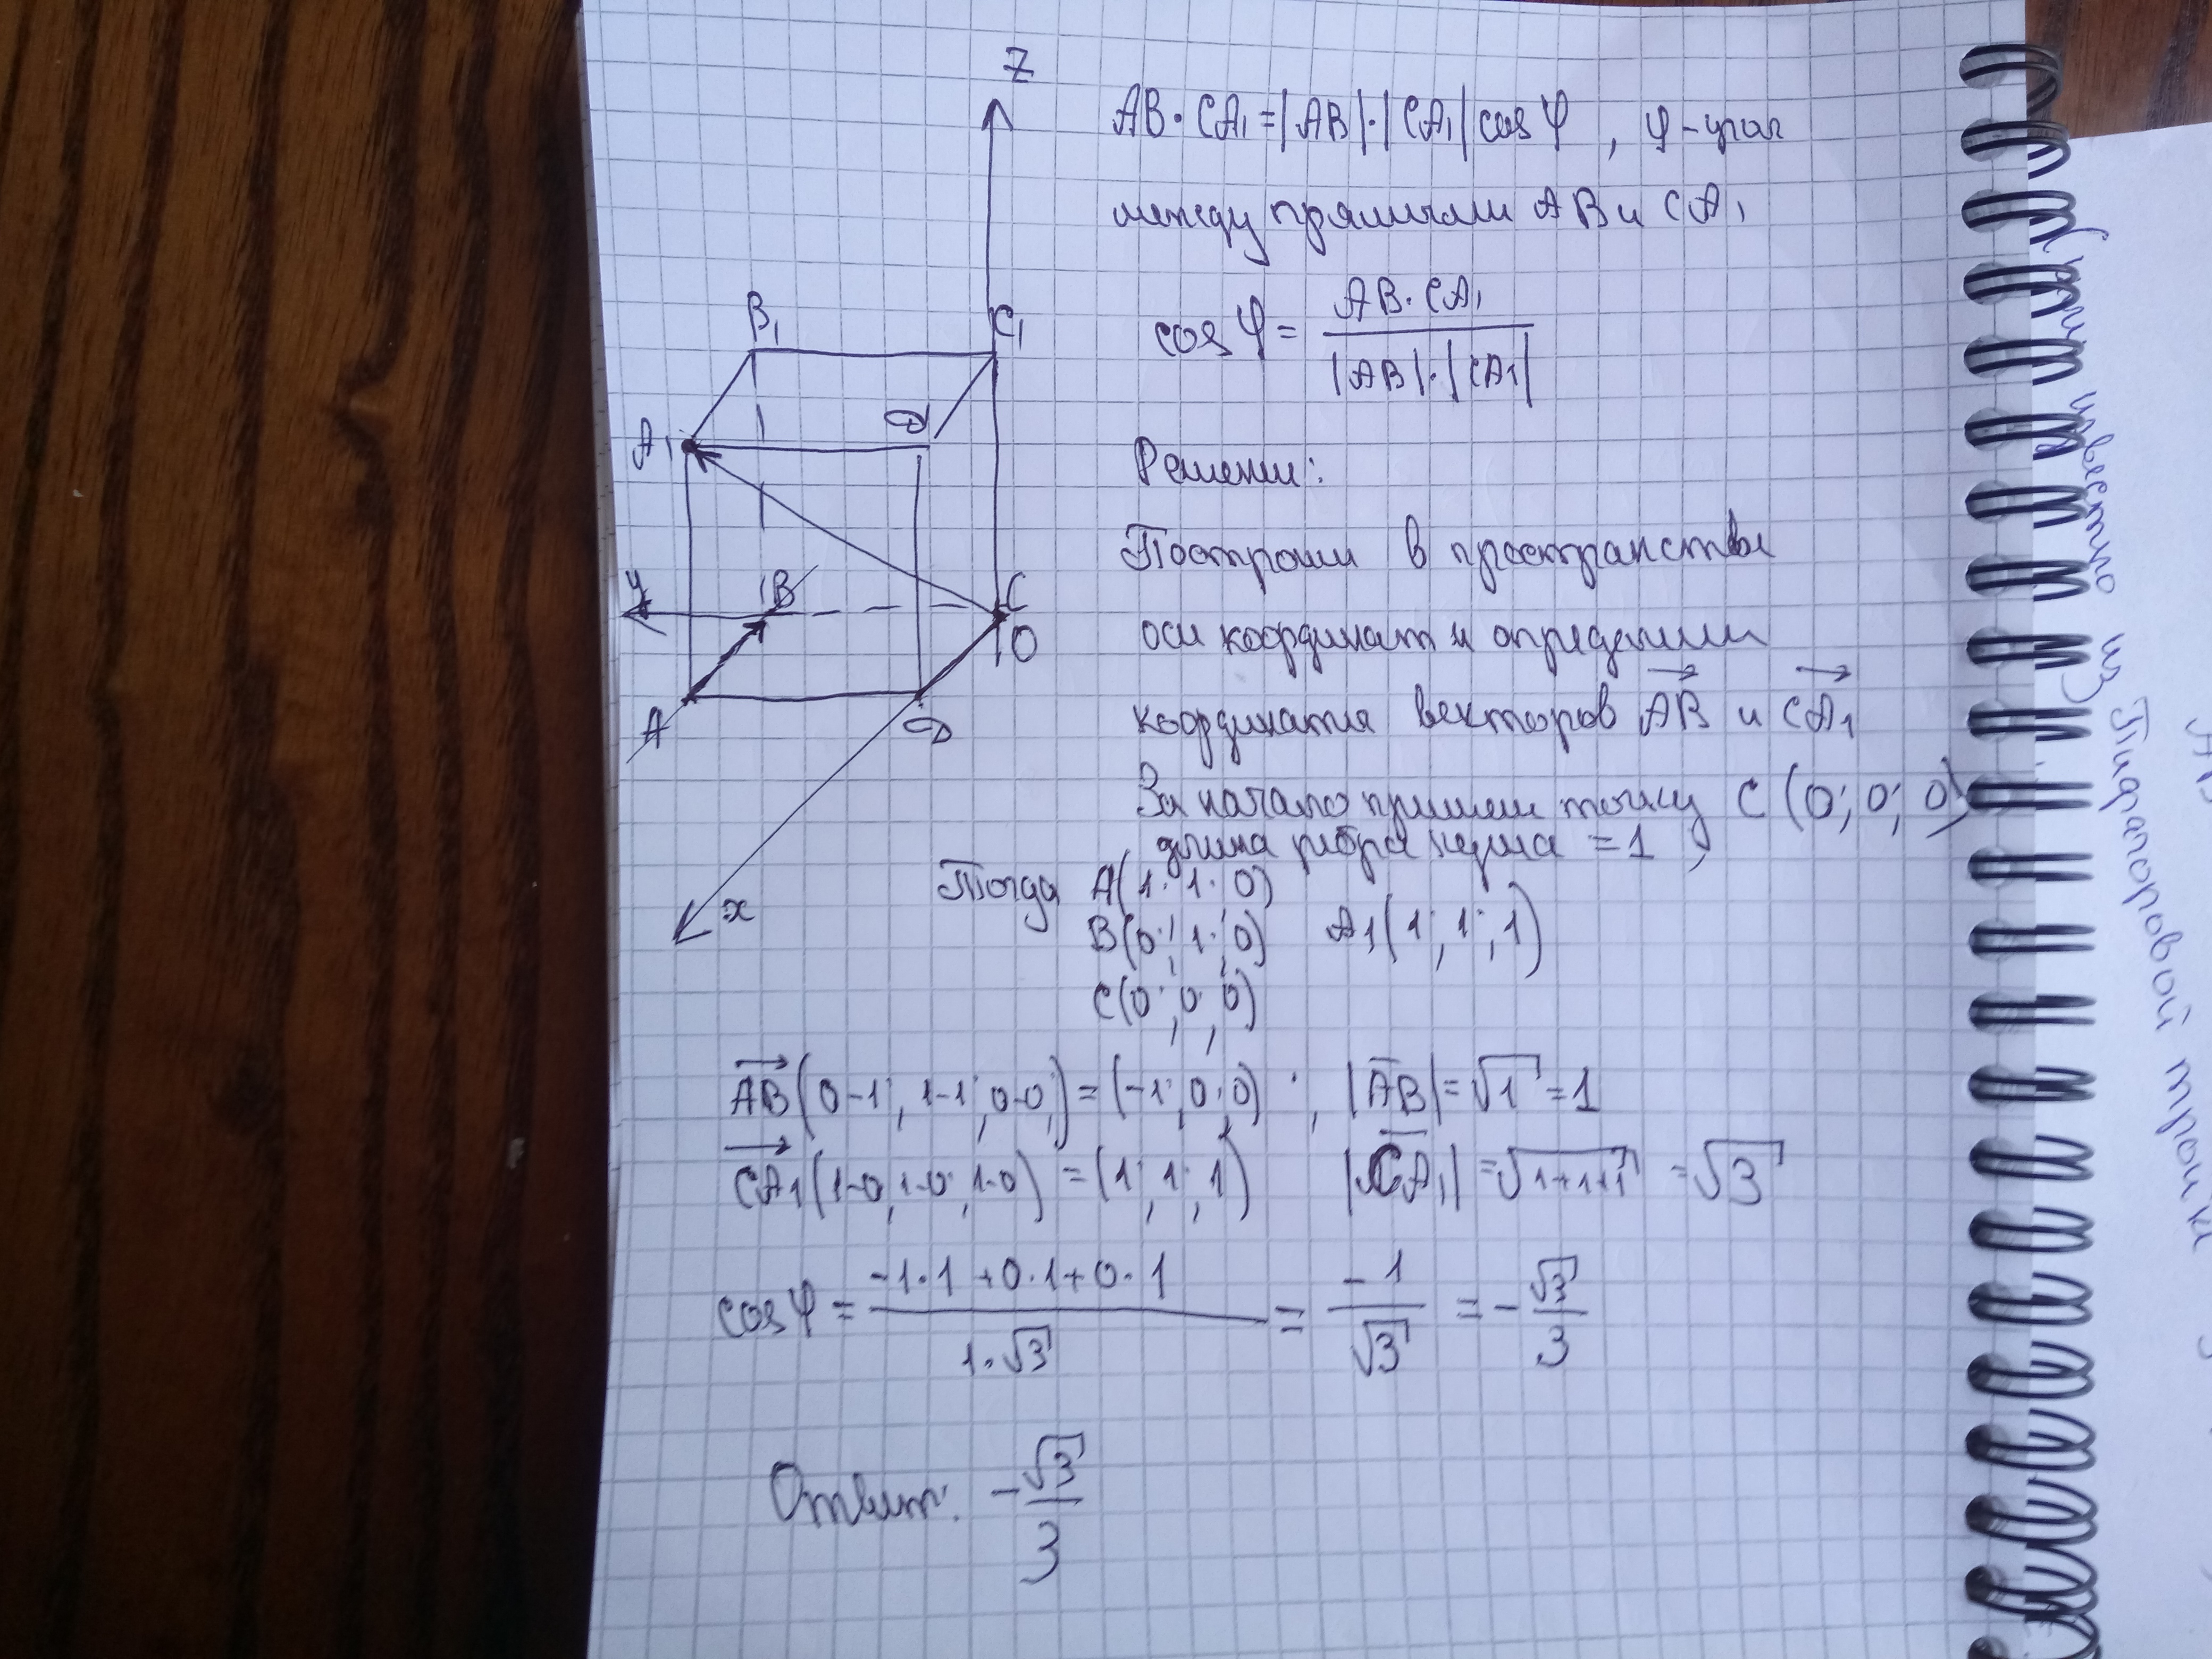 Z
AB · CA₁ = |AB| · |CA₁| cos φ , φ - угол
между прямыми AB и CA₁
cos φ = AB · CA₁ / |AB| · |CA₁|
B₁
C₁
A₁
D₁
Решение:
Построим в пространстве
оси координат и определим
координаты векторов AB и CA₁
y
B
C
O
A
D
x
За начало примем точку C (0; 0; 0)
длина ребра куба = 1 ,
Тогда A(1; 1; 0)
B(0; 1; 0) A₁(1; 1; 1)
C(0; 0; 0)
AB(0-1; 1-1; 0-0;) = (-1; 0; 0) ; |AB| = √1 = 1
CA₁(1-0; 1-0; 1-0) = (1; 1; 1) |CA₁| = √1+1+1 = √3
cos φ = -1·1 + 0·1 + 0·1 / 1·√3 = -1 / √3 = - √3 / 3
Ответ: - √3 / 3
известно из
Пифагоровой тройки